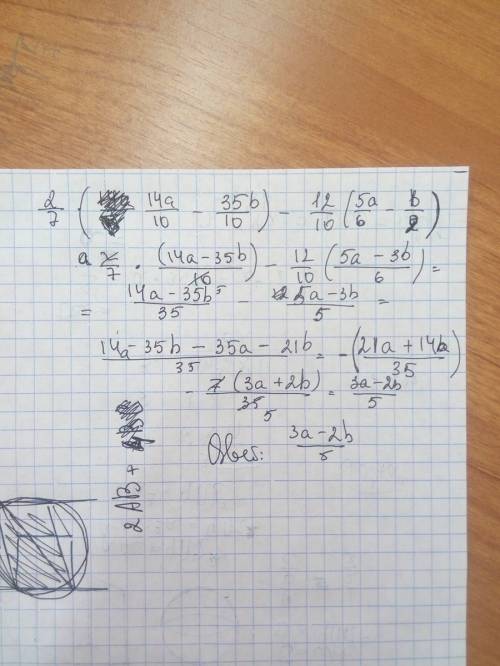 2/7 ( 14a/10 - 35b/10 ) - 12/10 ( 5a/6 - b/2 )
a 2/7 · (14a-35b)/10 - 12/10 ( (5a-3b)/6 ) =
= (14a-35b)/35 - (5a-3b)/5 =
(14a - 35b - 35a - 21b)/35 = - ( (21a + 14b)/35 )
- 7(3a+2b)/35 5 = (3a-2b)/5
Ответ: (3a-2b)/5
2 AB +